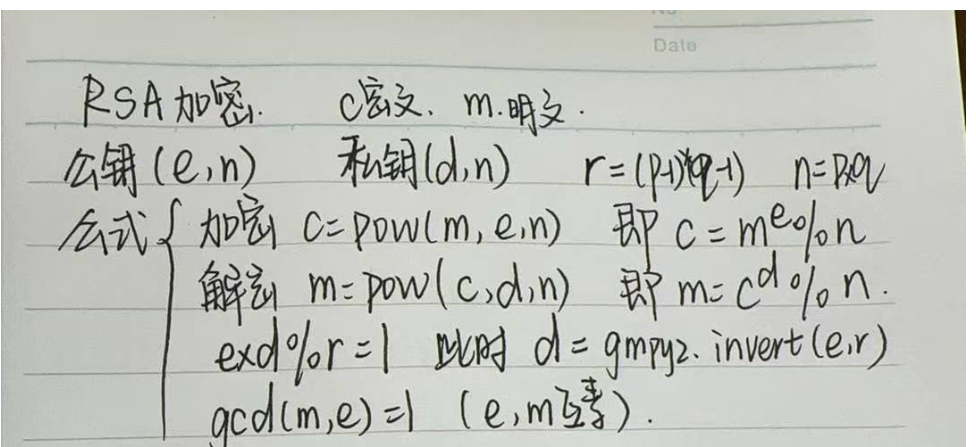 No
Date
RSA加密. c密文. m.明文.
公钥(e,n) 私钥(d,n) r=(p-1)*(q-1) n=p*q
公式{ 加密 c=pow(m,e,n) 即 c=m^e%n
解密 m=pow(c,d,n) 即 m=c^d%n.
e×d%r=1 此时 d=gmpy2.invert(e,r)
gcd(m,e)=1 (e,m互素).